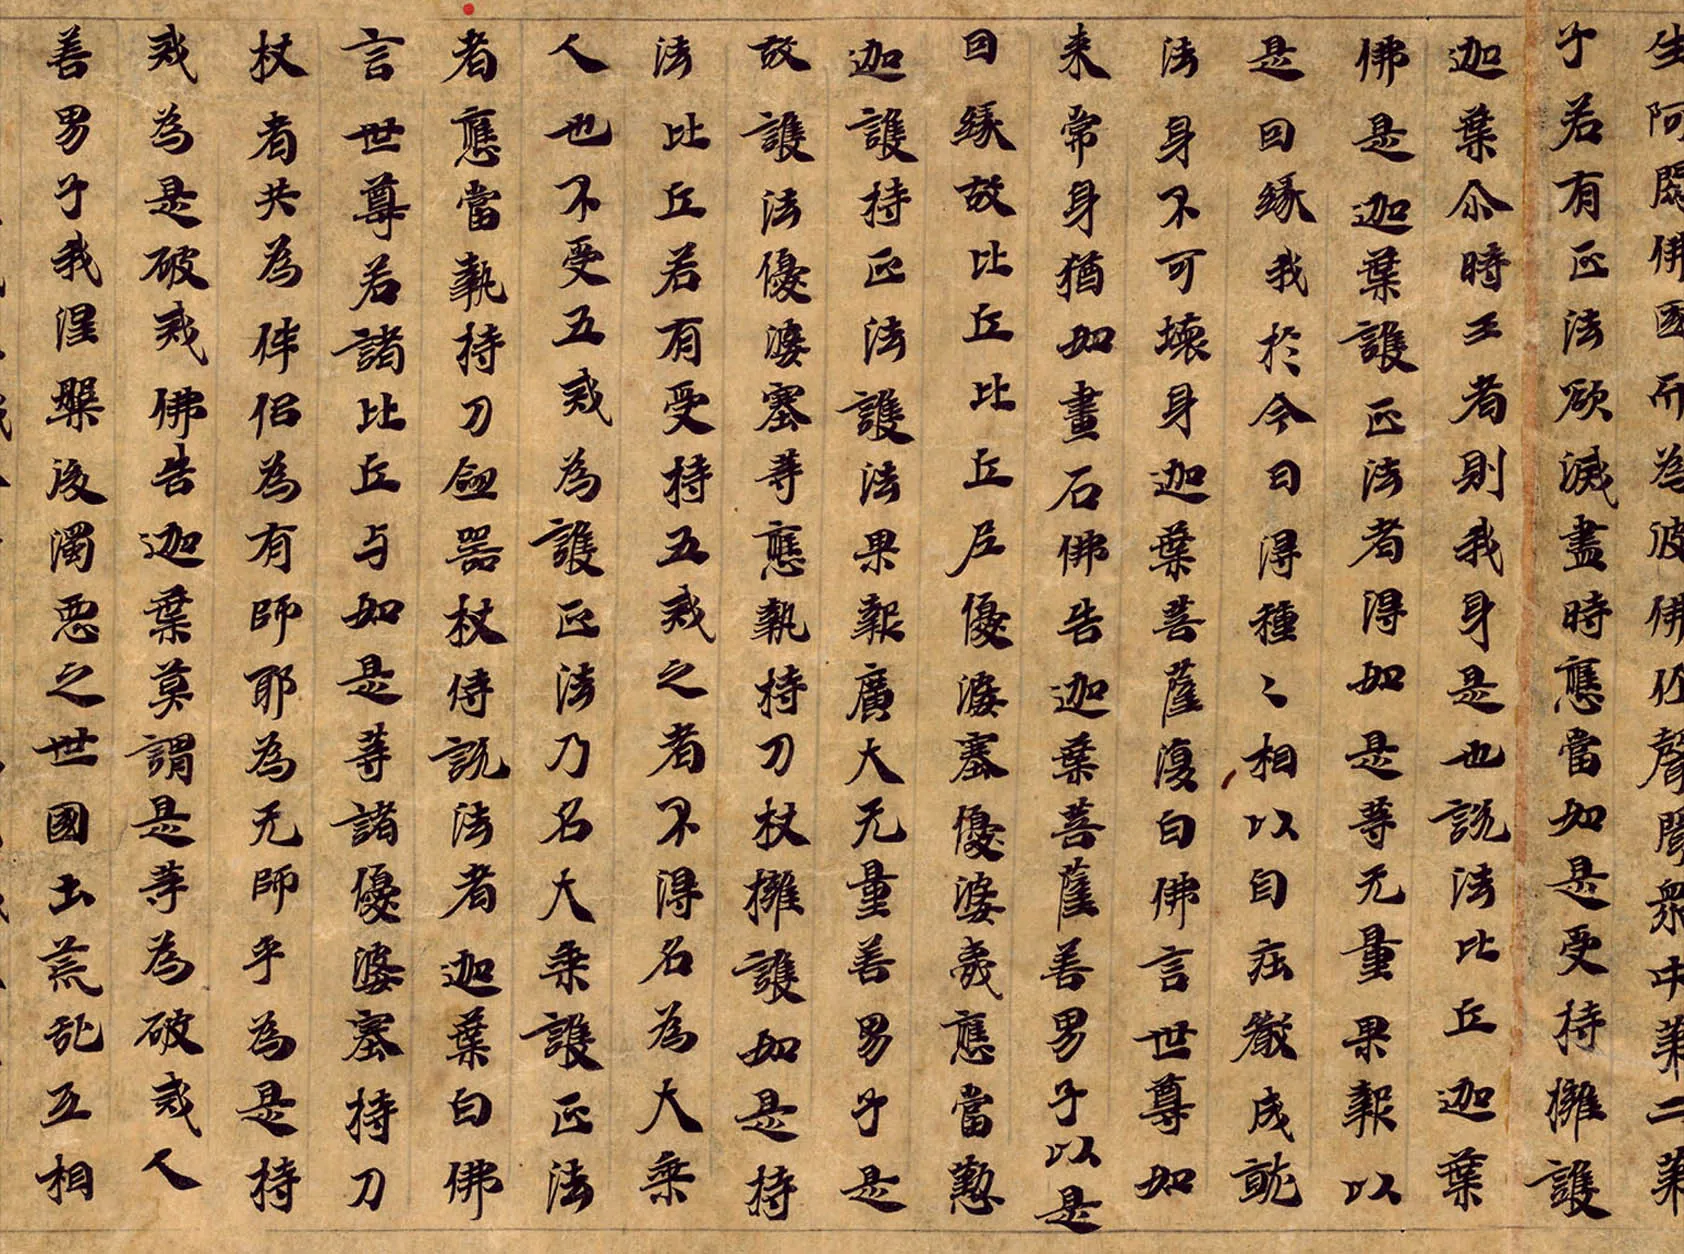 生阿閦佛國而為彼佛作聲聞衆中第二弟
子若有正法欲滅盡時應當如是受持擁護
迦葉尒時王者則我身是也說法比丘迦葉
佛是迦葉護正法者得如是等无量果報以
是因緣我於今日得種〻相以自庄嚴成就
法身不可壞身迦葉菩薩復白佛言世尊如
来常身猶如畫石佛告迦葉菩薩善男子以是
因緣故比丘比丘尼優婆塞優婆夷應當懃
迦護持正法護法果報廣大无量善男子是
故護法優婆塞等應執持刀杖擁護如是持
法比丘若有受持五戒之者不得名為大乘
人也不受五戒為護正法乃名大乘護正法
者應當執持刀劒器杖侍說法者迦葉白佛
言世尊若諸比丘与如是等諸優婆塞持刀
杖者共為伴侣為有師耶為无師乎為是持
戒為是破戒佛告迦葉莫謂是等為破戒人
善男子我涅槃後濁惡之世國土荒乱互相